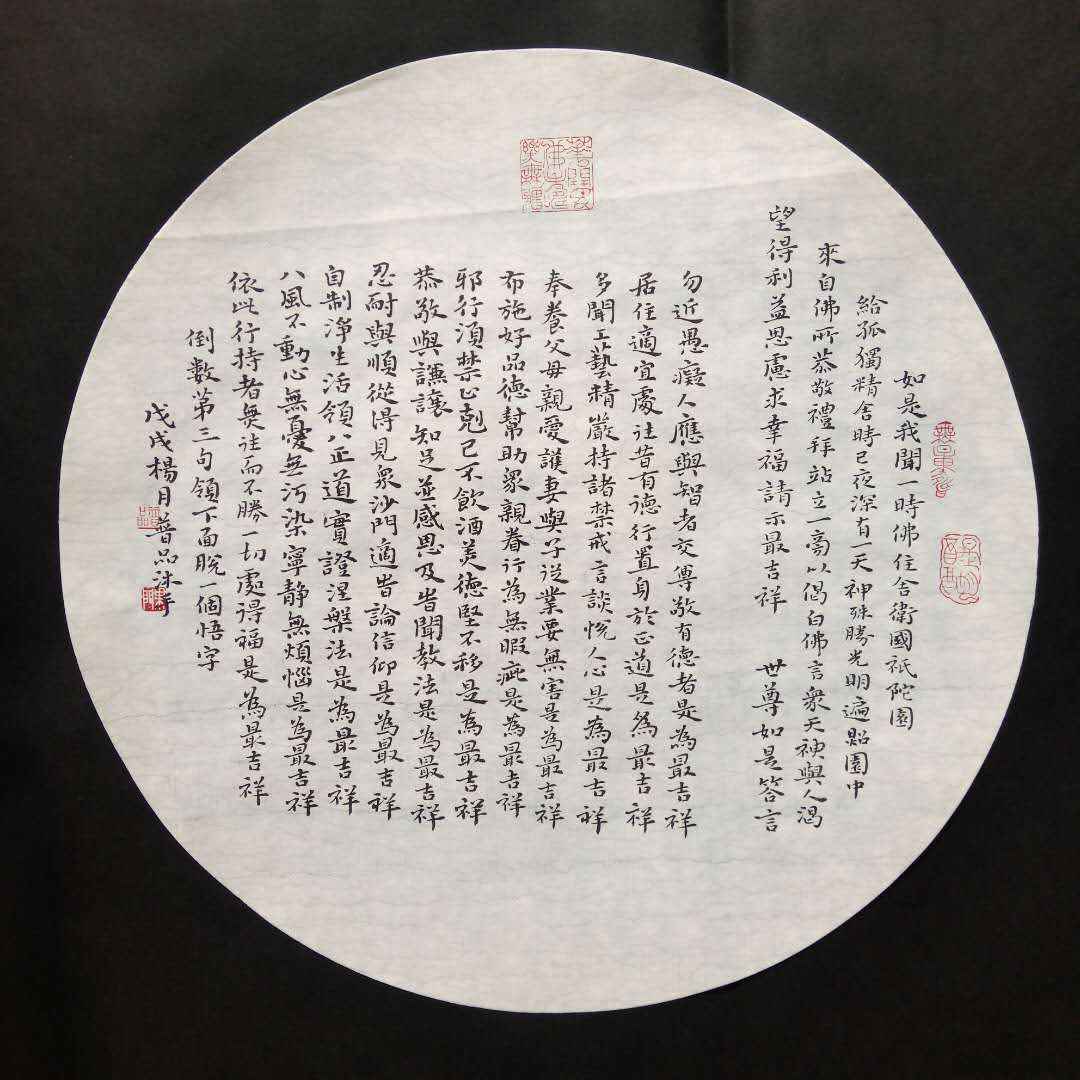 如是我聞一時佛住舍衛國祇陀園
給孤獨精舍時已夜深有一天神殊勝光明遍照園中
來自佛所恭敬禮拜站立一旁以偈白佛言眾天神與人渴
望得利益思慮求幸福請示最吉祥 世尊如是答言
勿近愚癡人應與智者交尊敬有德者是為最吉祥
居住適宜處往昔有德行置身於正道是為最吉祥
多聞工藝精嚴持諸禁戒言談悅人心是為最吉祥
奉養父母親愛護妻與子從業要無害是為最吉祥
布施好品德幫助眾親眷行為無瑕疵是為最吉祥
邪行須禁止剋己不飲酒美德堅不移是為最吉祥
恭敬與謙讓知足並感恩及時聞教法是為最吉祥
忍耐與順從得見眾沙門適時論信仰是為最吉祥
自制淨生活領八正道實證涅槃法是為最吉祥
八風不動心無憂無污染寧靜無煩惱是為最吉祥
依此行持者無往而不勝一切處得福是為最吉祥
倒數第三句領下面脫一個悟字
戊戌楊月普品沐手